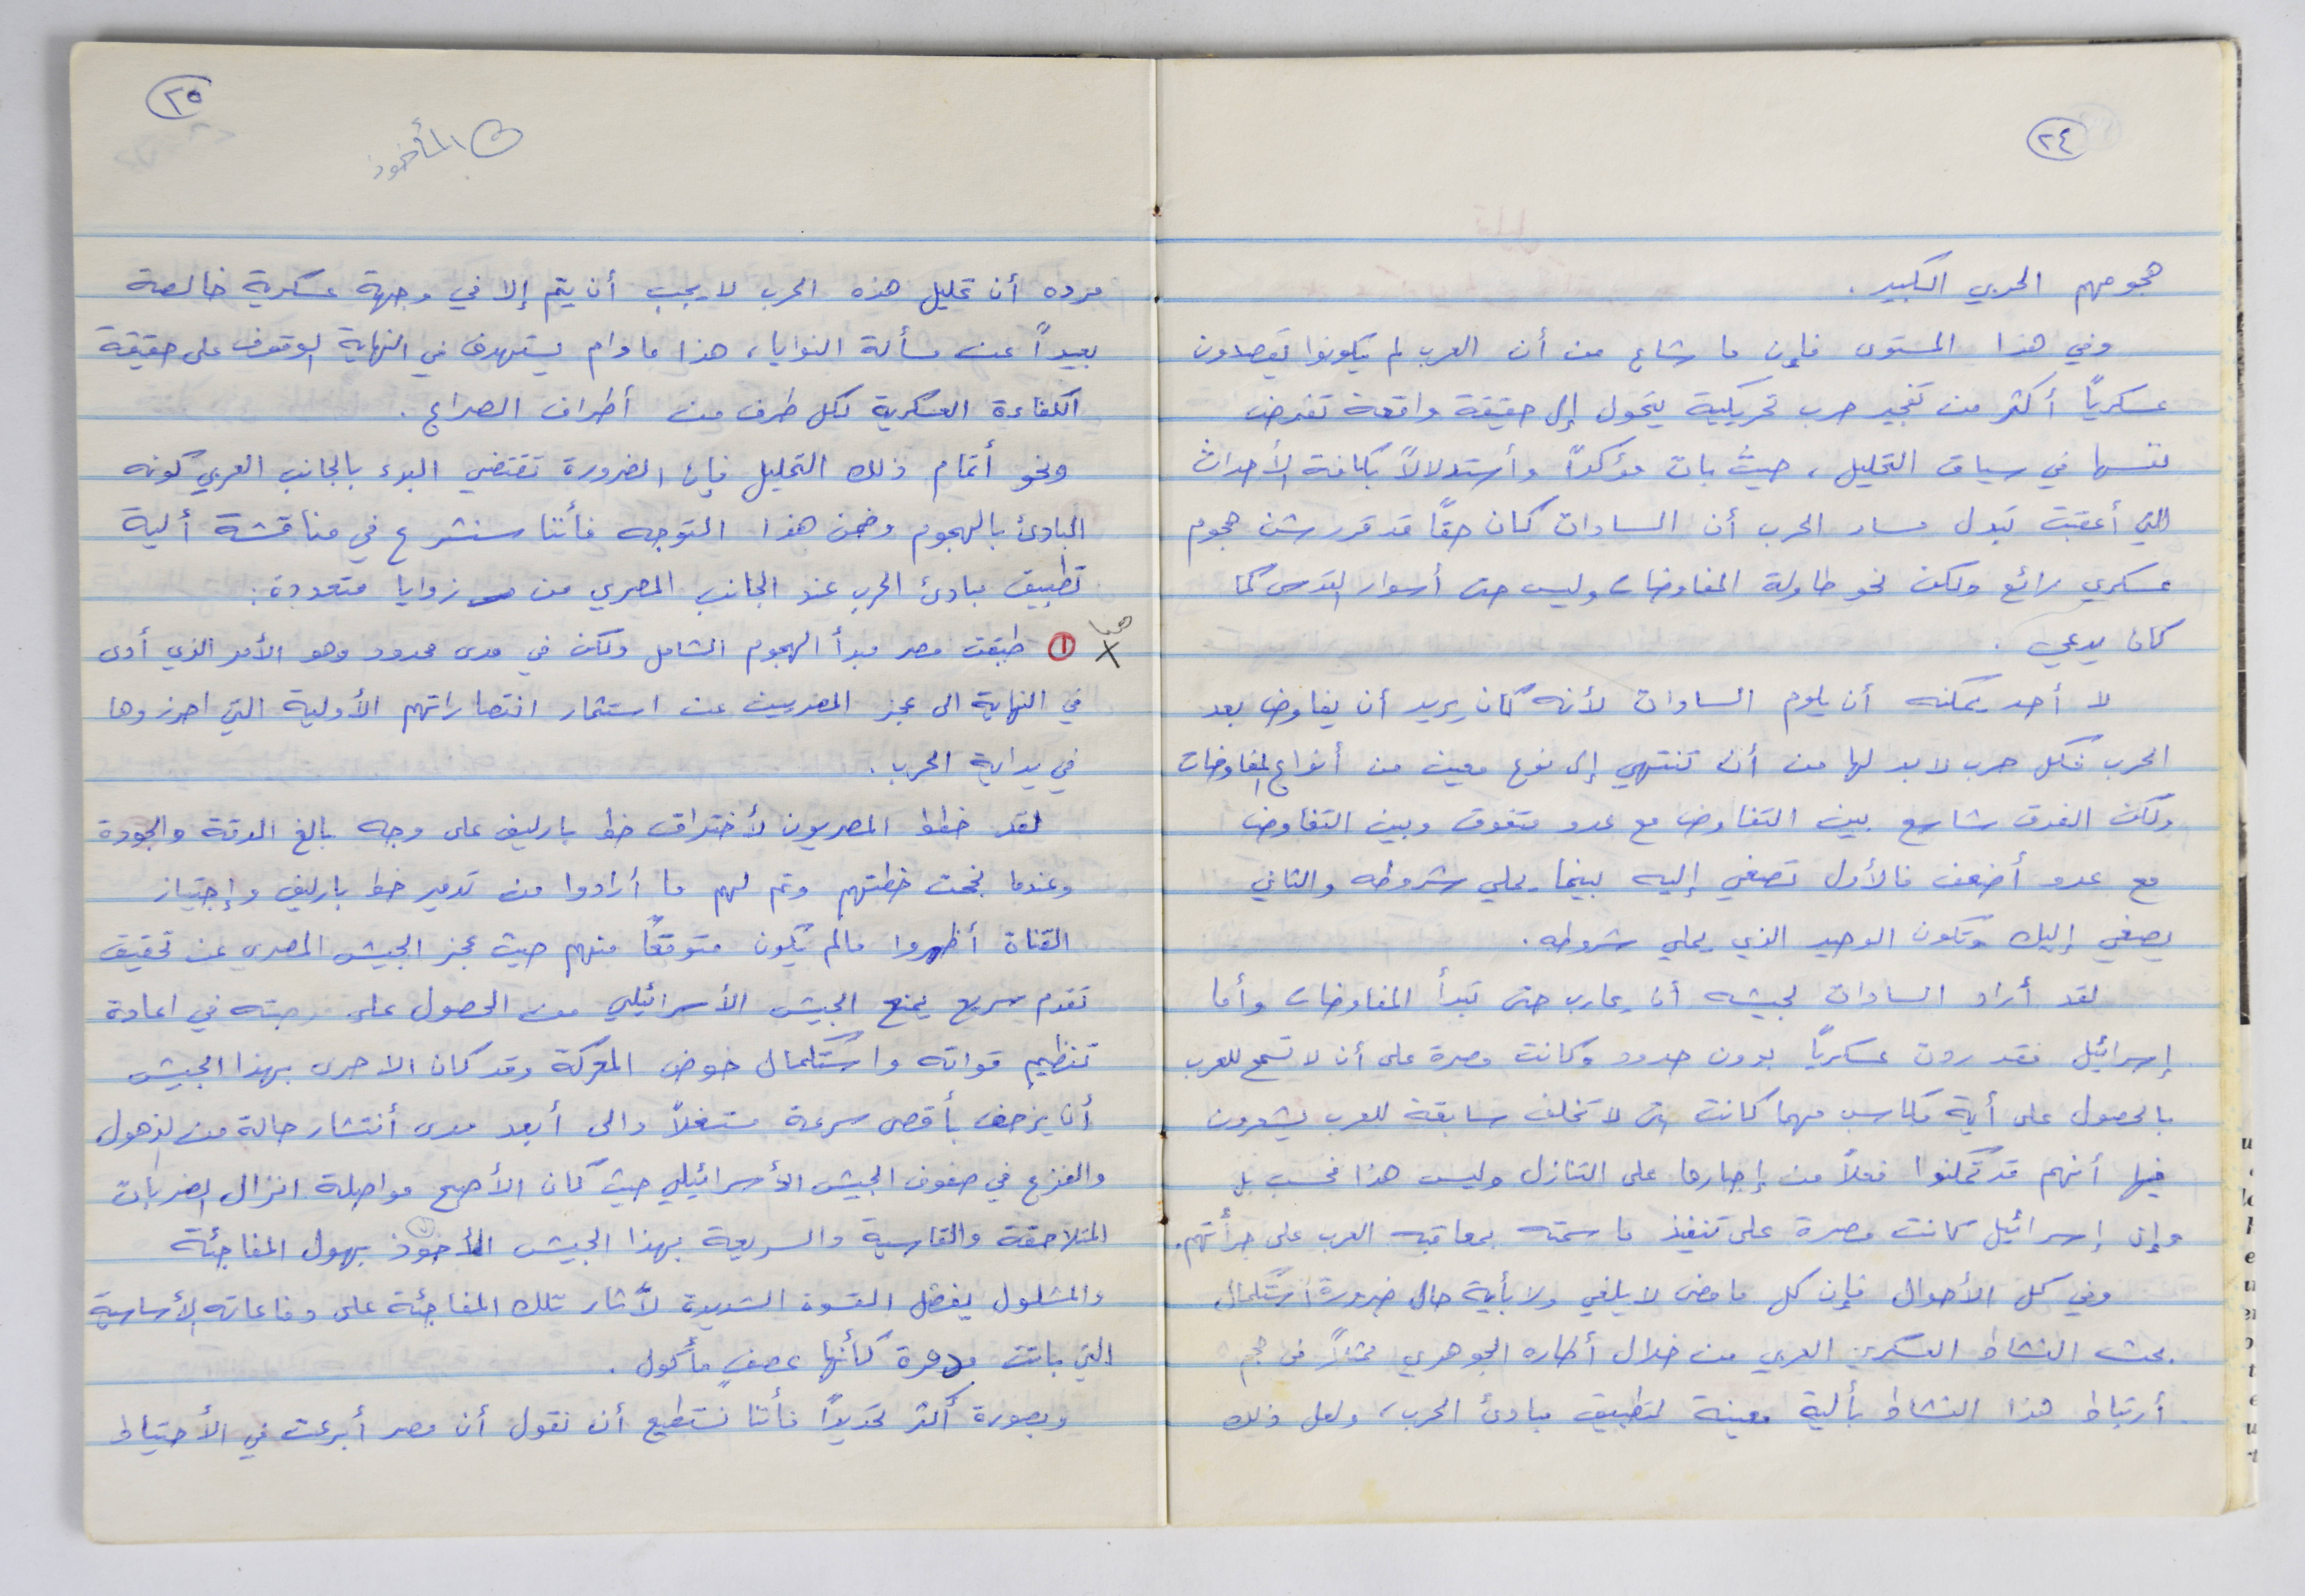 ٢٤
هجومهم الحربي الكبير .
وفي هذا المستوى فإن ما شاع من أن العرب لم يكونوا يقصدون
عسكرياً أكثر من تفجير حرب تحريكية يتحول إلى حقيقة واقعة تفرض
نفسها في سياق التحليل ، حيث بات مؤكداً وأستدلالاً بكافة الأحداث
التي أعقبت تبدل مسار الحرب أن السادات كان حقاً قد قرر شن هجوم
عسكري رائع ولكن نحو طاولة المفاوضات وليس حتى أسوار القدس كما
كان يدعي .
لا أحد يمكنه أن يلوم السادات لأنه كان يريد أن يفاوض بعد
الحرب فكل حرب لا بد لها من أن تنتهي إلى نوع معين من أنواع المفاوضات
ولكن الفرق شاسع بين التفاوض مع عدو متفوق وبين التفاوض
مع عدو أضعف فالأول تصغي إليه بينما يملي شروطه والثاني
يصغي إليك وتكون الوحيد الذي يملي شروطه .
لقد أراد السادات لجيشه أن يحارب حتى تبدأ المفاوضات وأما
إسرائيل فقد ردت عسكرياً بدون حدود وكانت مصرة على أن لا تسمح للعرب
بالحصول على أية مكاسب مهما كانت حتى لا تخلف سابقة للعرب يشعرون
فيها أنهم قد تمكنوا فعلاً من إجبارها على التنازل وليس هذا فحسب بل
وإن إسرائيل كانت مصرة على تنفيذ ما سمته بمعاقبه العرب على جرأتهم .
وفي كل الأحوال فإن كل ما مضى لا يلغي ولا بأية حال ضرورة أستكمال
بحث النشاط العسكري العربي من خلال أطاره الجوهري ممثلاً في حجم
أرتباط هذا النشاط بألية معينة لتطبيق مبادئ الحرب ، ولعل ذلك
٢٥
المأخوذ
مرده أن تحليل هذه الحرب لا يجب أن يتم إلا في وجهة عسكرية خالصة
بعيداً عن مسألة النوايا ، هذا ما دام يستهدف في النهاية الوقوف على حقيقة
الكفاءة العسكرية لكل طرف من أطراف الصراع .
ونحو أتمام ذلك التحليل فإن الضرورة تقتضي البدء بالجانب العربي كونه
البادئ بالهجوم وضمن هذا التوجه فأننا سنشرع في مناقشة ألية
تطبيق مبادئ الحرب عند الجانب المصري من زوايا متعددة :
هنا
① طبقت مصر مبدأ الهجوم الشامل ولكن في مدى محدود وهو الأمر الذي أدى
في النهاية الى عجز المصريين عن استثمار انتصاراتهم الأولية التي احرزوها
في بداية الحرب .
لقد خطط المصريون لأختراق خط بارليف على وجه بالغ الدقة والجودة
وعندما نجحت خطتهم وتم لهم ما أرادوا من تدمير خط بارليف وإجتياز
القناة أظهروا مالم يكون متوقعاً منهم حيث عجز الجيش المصري عن تحقيق
تقدم سريع يمنع الجيش الأسرائيلي من الحصول على فرصته في اعادة
تنظيم قواته واستكمال خوض المعركة وقد كان الاحرى بهذا الجيش
أن يزحف بأقصى سرعة مستغلاً والى أبعد مدى أنتشار حالة من الذهول
والفزع في صفوف الجيش الأسرائيلي حيث كان الأصح مواصلة انزال الضربات
المتلاحقة والقاسية والسريعة بهذا الجيش المأخوذ بهول المفاجئة
والمشلول بفضل القسوة الشديدة لأثار تلك المفاجئة على دفاعاته الأساسية
التي باتت مدمرة كأنها عصفٍ مأكول .
وبصورة أكثر تحديداً فأننا نستطيع أن نقول أن مصر أبرعت في الأحتياط